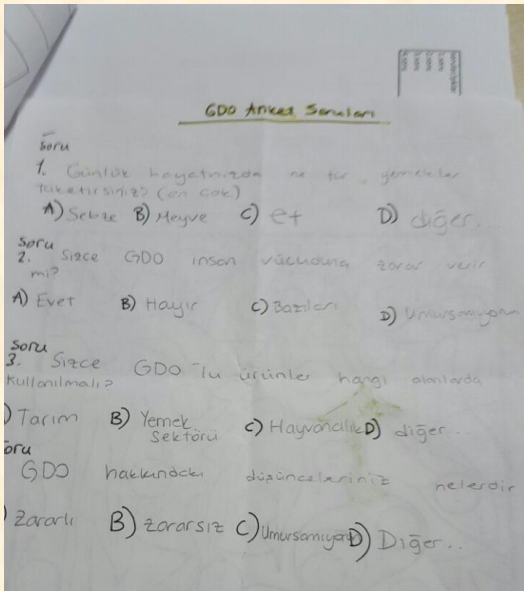 GDO Anket Soruları
Soru
1. Günlük hayatınızda ne tür yemekler
tüketirsiniz? (en çok)
A) Sebze B) Meyve C) et D) diğer..
Soru
2. Sizce GDO insan vücuduna zarar verir
mi?
A) Evet B) Hayır C) Bazıları D) Umursamıyorum
Soru
3. Sizce GDO'lu ürünler hangi alanlarda
kullanılmalı?
) Tarım B) Yemek Sektörü C) Hayvancılık D) diğer..
oru
GDO hakkındaki düşünceleriniz nelerdir
) Zararlı B) zararsız C) Umursamıyorum D) Diğer..